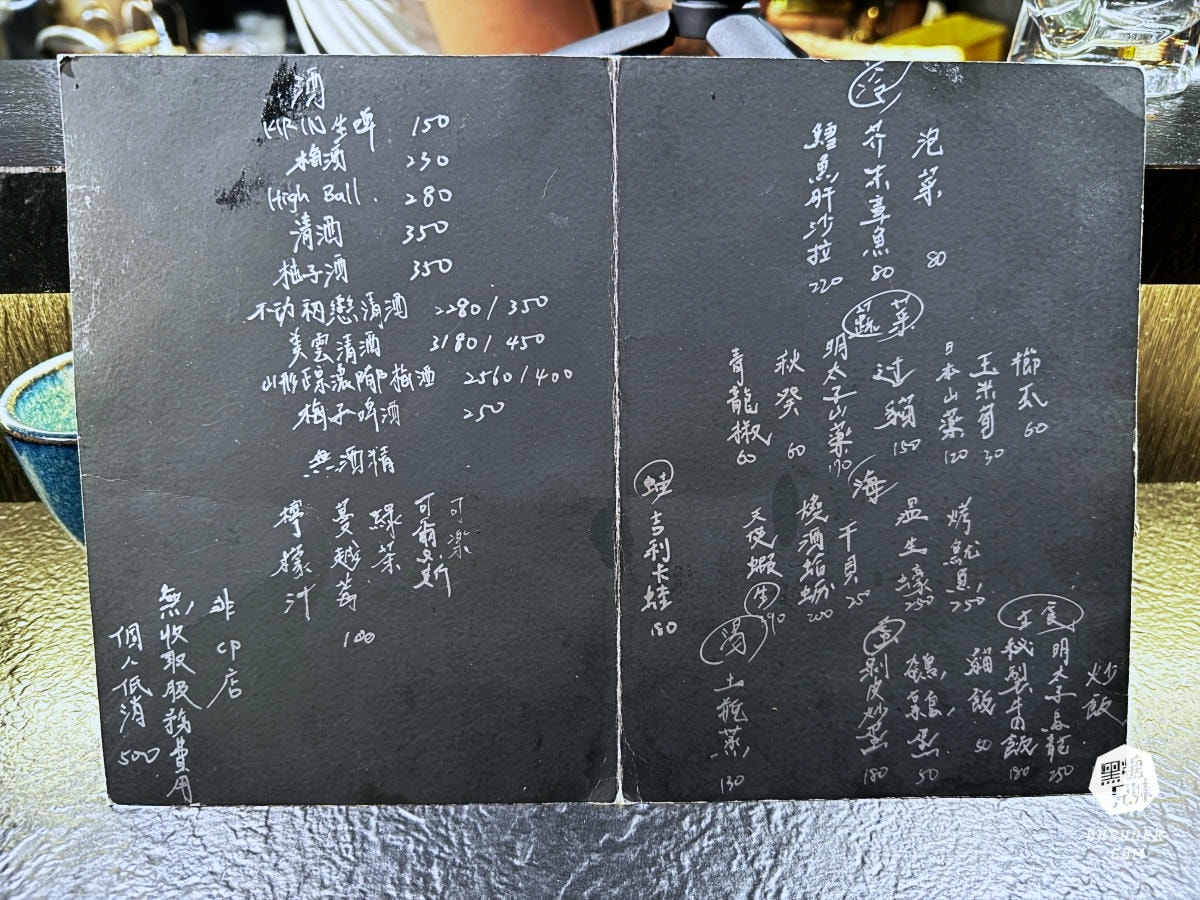 酒
KIRIN生啤 150
梅酒 230
High Ball. 280
清酒 350
柚子酒 350
不动初戀清酒 2280/350
美雲清酒 3180/450
山形正宗濃郁梅酒 2560/400
梅子啤酒 250
無酒精
可樂
可爾必斯
綠茶
蔓越莓
檸檬汁
100
非cp店
無收取服務費用
個人低消500
冷
泡菜 80
芥末章魚 80
鱈魚肝沙拉 220
蔬菜
櫛瓜 60
玉米筍 30
日本山藥 120
过貓 150
明太子山藥 170
秋葵 60
青龍椒 60
海
烤魷魚 250
温生蠔 250
干貝 250
燒酒蛤蜊 200
天使蝦
生
蛙
吉利卡蛙 180
主食
炒飯
明太子烏龍 250
秘製牛肉飯 180
貓飯 50
蛋
鵪鶉蛋 50
剝皮炒蛋 180
湯
土瓶蒸 130
黑糖
DHSUGER
.COM